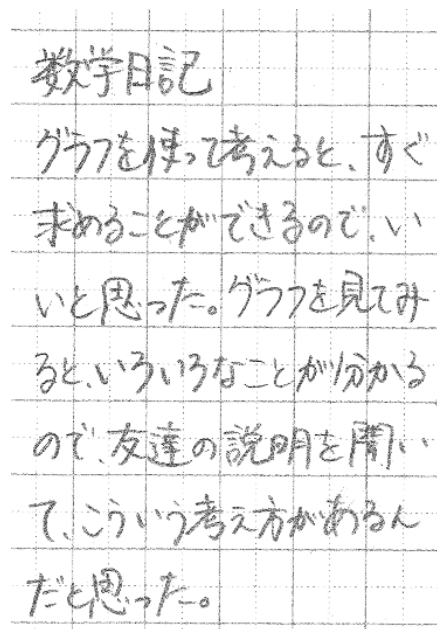 数学日記
グラフを使って考えると、すぐ
求めることができるので、い
いと思った。グラフを見てみ
ると、いろいろなことが分かる
ので、友達の説明を聞い
て、こういう考え方があるん
だと思った。